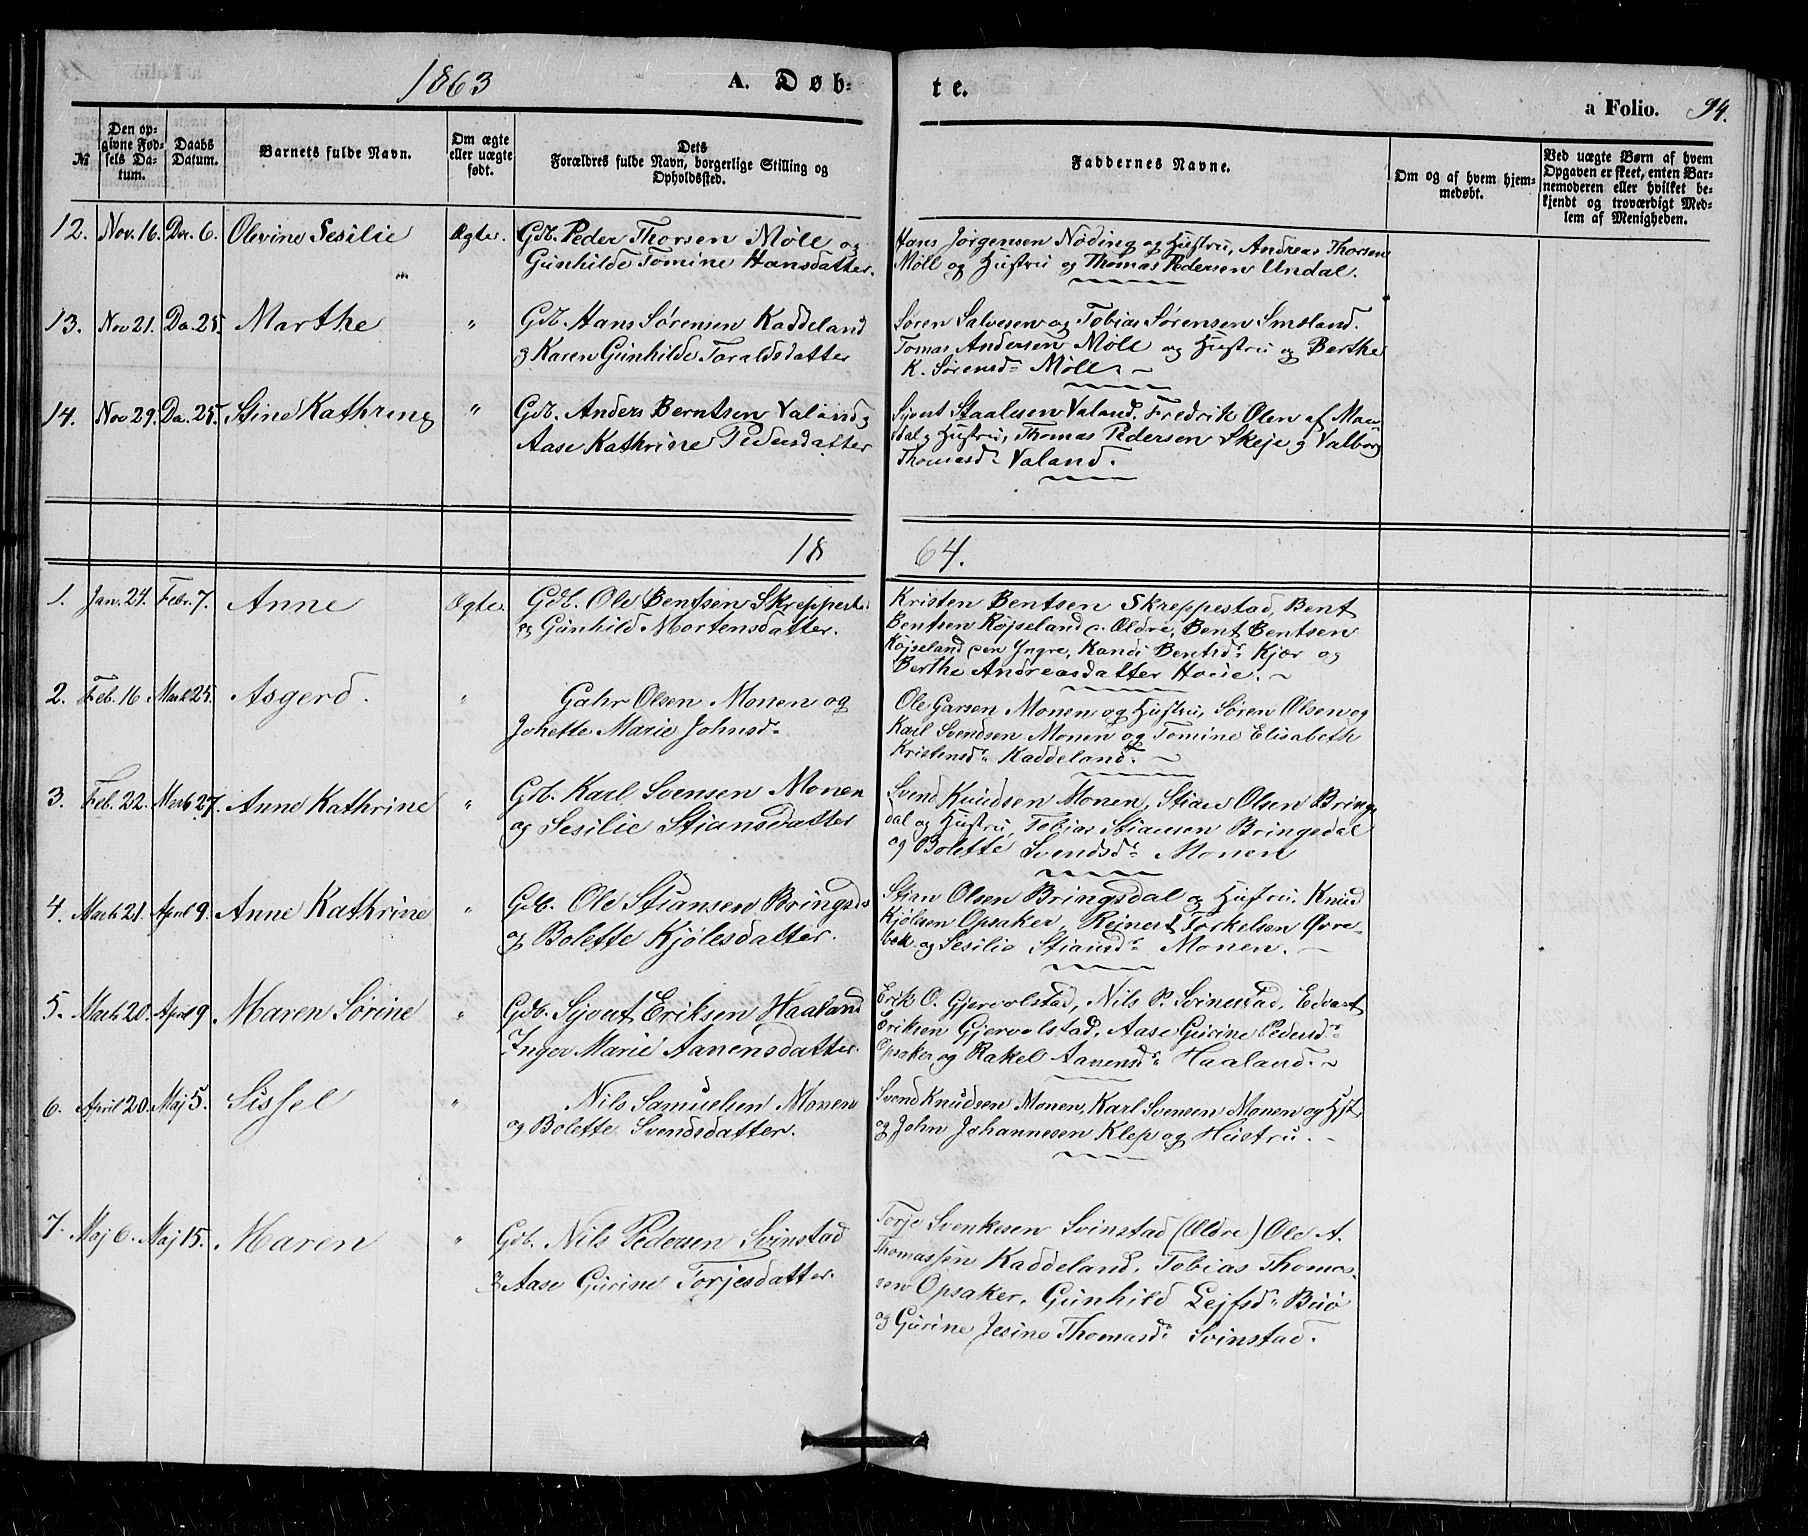 1863 A. Døb- te. a Folio. 94.
№ Den opgivne Fødsels Datum. Daabs Datum. Barnets fulde Navn. Om ægte eller uægte født. Dets Forældres fulde Navn, borgerlige Stilling og Opholdssted. Faddernes Navne. Om og af hvem hjemmedøbt. Ved uægte Børn af hvem Opgaven er skeet, enten Barnemoderen eller hvilket bekjendt og troværdigt Medlem af Menigheden.
12. Nov. 16. Dec. 6. Olevine Sesilie Ægte. Gdb. Peder Thorsen Möll og
Gunhilde Tomine Hansdatter.
Hans Jörgensen Nöding og Hustru, Andreas Thorsen
Möll og Hustru og Thomas Pedersen Undal.
13. Nov 21. De. 25. Marthe " Gdb. Hans Sörensen Kaddeland
og Karen Gunhilde Toraldsdatter
Sören Salvesen og Tobias Sörensen Smsland.
Tomas Andersen Möll og Hustru og Berthe
K. Sörensd. Möll.
14. Nov 29. De. 25. Stine Kathrine " Gdb. Anders Berntsen Valand og
Aase Kathrine Pedersdatter
Sjout Staalesen Valand, Fredrik Olen af Man-
dal og Hustru, Thomas Pedersen Skeje og Valborg
Thomasd. Valand.
18 64.
1. Jan. 24. Febr. 7. Anne Ægte. Gdb. Ole Bentsen Skreppest:
og Gunhild Mortensdatter.
Kristen Bentsen Skreppestad, Bent
Bentsen Röjseland Ældre, Bent Bentsen
Röjseland den Yngre, Kandi Bentsd. Kjær og
Berthe Andreasdatter Houe.
2. Feb. 16 Mart 25. Asgerd. " Gahr Olsen Monen og
Johette Marie Johnsd.
Ole Garsen Monen og Hustru, Sören Olsen og
Karl Svendsen Monen og Tomine Elisabeth
Kristensd. Kaddeland.
3. Feb. 22. Mart 27. Anne Kathrine " Gdb. Karl Svensen Monen
og Sesilie Stiansdatter
Svend Knudsen Monen, Stian Olsen Brings-
dal og Hustru, Tobias Stiansen Bringsdal
og Bolette Svendsd. Monen
4. Mart 21. April 9. Anne Kathrine " Gdb. Ole Stiansen Bringsd:
og Bolette Kjölesdatter.
Stian Olsen Bringsdal og Hustru, Knud
Kjölsen Opsaker, Reinert Torkelsen Övre-
bæk og Sesilie Stiansd. Monen.
5. Mart 20. April 9 Maren Sörine " Gdb. Sjout Eriksen Haaland
Inger Marie Aanensdatter.
Erik O. Gjervolstad, Nils P. Svinestad, Edvart
Eriksen Gjervolstad, Aase Gurine Pedersd.
Opsaker og Rakel Aanensd. Haaland.
6. April 20. Maj 5. Sissel " Nils Samuelsen Monen
og Bolette Svendsdatter.
Svend Knudsen Monen, Karl Svensen Monen og Hst.
og John Johannesen Klep og Hustru.
7. Maj 6. Maj 15. Maren " Gdb. Nils Pedersen Svinstad
og Aase Gurine Torjesdatter.
Torje Svenkesen Svinstad (Ældre) Ole A.
Thomassen Kaddeland, Tobias Thomas-
sen Opsaker, Gunhild Lejfsd. Buö
og Gurine Jesine Thomasd. Svinstad.